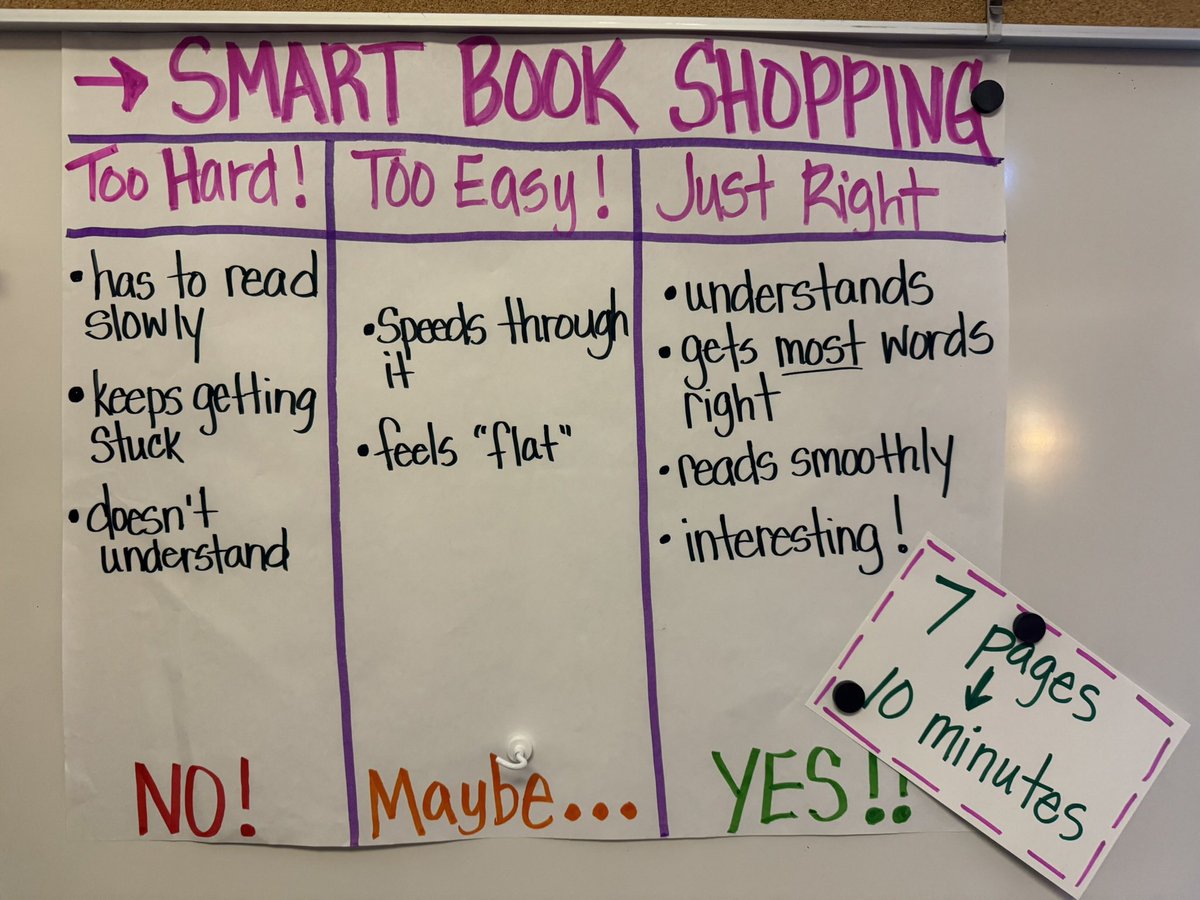 → SMART BOOK SHOPPING
Too Hard!
• has to read
slowly
• keeps getting
stuck
• doesn't
understand
NO!
Too Easy!
• Speeds through
it
• feels "flat"
Maybe...
Just Right
• understands
• gets most words
right
• reads smoothly
• interesting!
YES!!
7 pages
↓
10 minutes